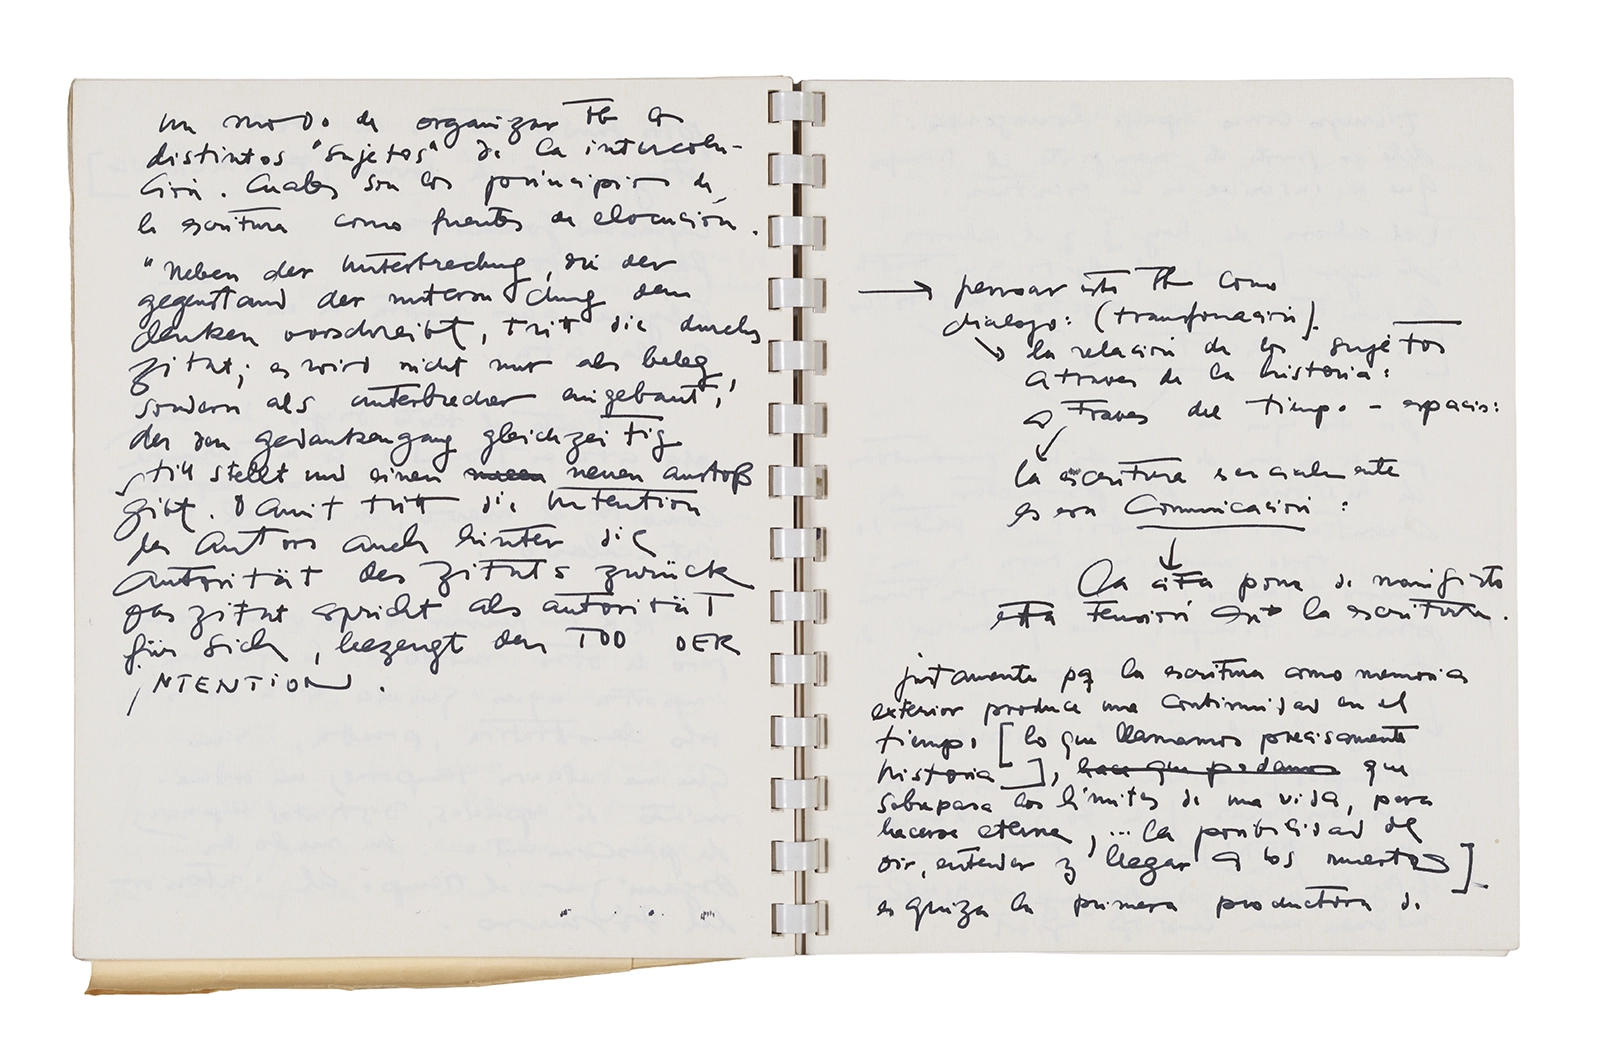 un modo de organizar Th a
distintos "sujetos" de la intercolu-
ción. Cuales son los principios de
la escritura como fuentes de elocución.
"Neben der Unterbrechung, die der
gegenstand der untersuchung dem
denken vorschreibt, tritt die durchs
zitat; es wird nicht nur als beleg,
sondern als unterbrecher eingebaut,
der den gedankengang gleichzeitig
still stellt und einen neuen anstoß
gibt. Damit tritt die Intention
des Autors auch hinter die
Autorität des zitats zurück
das zitat spricht als autorität
für sich, bezeugt den TOD DER
INTENTION.
→ pensar esto Th como
dialogo: (transformación).
la relación de los sujetos
a traves de la historia:
a traves del tiempo - espacio:
la escritura esencialmente
es era Comunicación:
La cita pone de manifiesto
esta tensión en la escritura.
justamente pq la escritura como memoria
exterior produce una continuidad en el
tiempo [lo que llamamos precisamente
historia], hace que podamos que
sobrepasa los límites de una vida, para
hacerse eterna, ... la posibilidad de
oir, entender y llegar a los muertos]
es quiza la primera productora de